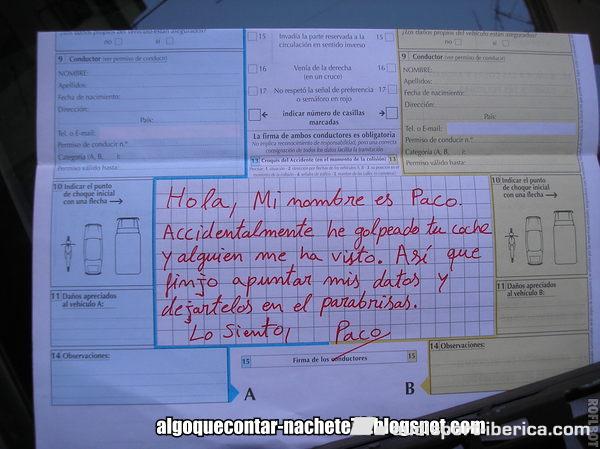 ¿Los daños propios del vehículo están asegurados?
no si
9 Conductor (ver permiso de conducir)
NOMBRE:
Apellidos:
Fecha de nacimiento:
Dirección:
País:
Tel. o E-mail:
Permiso de conducir n.º
Categoría (A, B,
Permiso válido hasta:
10 Indicar el punto
de choque inicial
con una flecha
11 Daños apreciados
al vehículo A:
14 Observaciones:
15 Invadía la parte reservada a la 15
circulación en sentido inverso
16 Venía de la derecha 16
(en un cruce)
17 No respetó la señal de preferencia 17
o semáforo en rojo
indicar número de casillas
marcadas
La firma de ambos conductores es obligatoria
No implica reconocimiento de responsabilidad, pero una correcta
consignación de todos los datos facilita la tramitación
13 Croquis del Accidente (en el momento de la colisión) 13
Hola, Mi nombre es Paco.
Accidentalmente he golpeado tu coche
y alguien me ha visto. Así que
finjo apuntar mis datos y
dejartelos en el parabrisas.
Lo siento, Paco
15 Firma de los conductores 15
A B
¿Los daños propios del vehículo están asegurados?
no si
9 Conductor (ver permiso de conducir)
NOMBRE:
Apellidos:
Fecha de nacimiento:
Dirección:
País:
Tel. o E-mail:
Permiso de conducir n.º
Categoría (A, B,
Permiso válido hasta:
10 Indicar el punto
de choque inicial
con una flecha
11 Daños apreciados
al vehículo B:
14 Observaciones:
algoquecontar-nachete blogspot.com
iberica.com
ROFLBOT